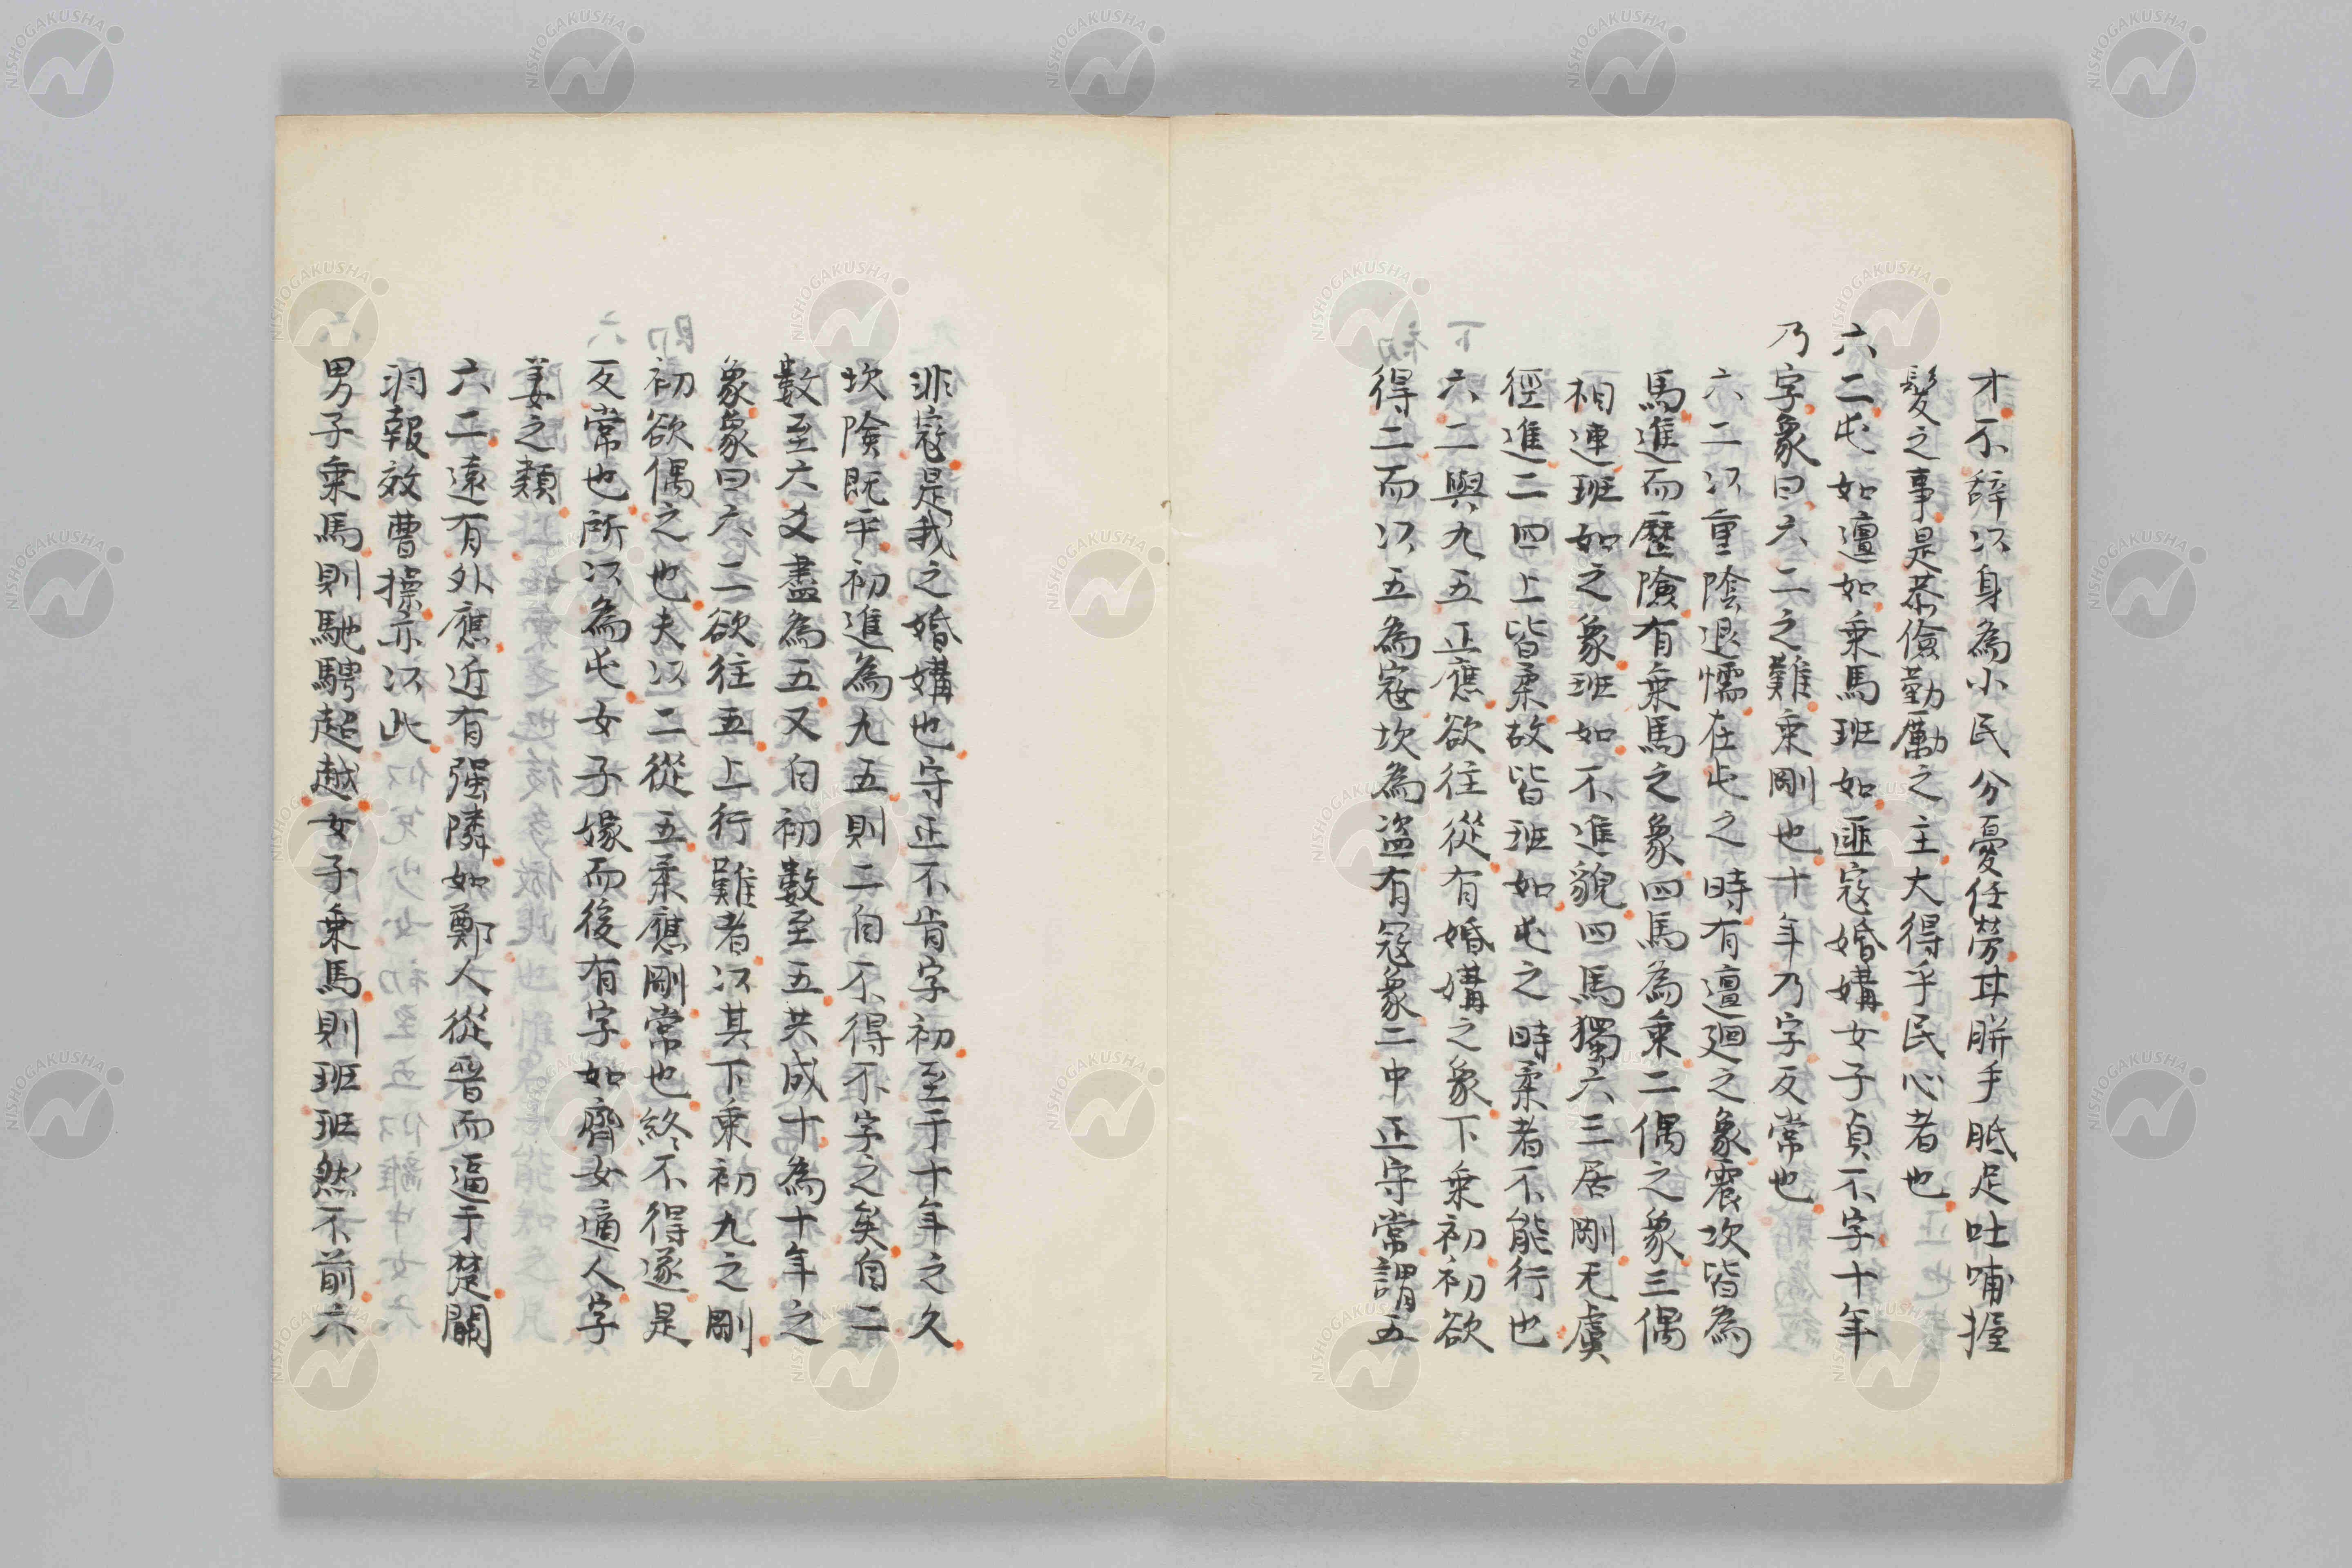 才不辭以身為小民分憂任勞其胼手胝足吐哺握
髮之事是恭儉勤勵之主大得乎民心者也
六二屯如邅如乘馬班如匪寇婚媾女子貞不字十年
乃字象曰六二之難乘剛也十年乃字反常也
六二以重陰退懦在屯之時有邅廻之象震坎皆為
馬進而歷險有乘馬之象四馬為乘二偶之象三偶
相連班如之象班如不進貌四馬獨六三居剛无虞
徑進二四上皆柔故皆班如屯之時柔者不能行也
六二與九五正應欲往從有婚媾之象下乘初初欲
得二而以五為寇坎為盜有寇象二中正守常謂五
非寇是我之婚媾也守正不肯字初至于十年之久
坎險既平初進為九五則二自不得不字之矣自二
數至六爻盡為五又自初數至五共成十為十年之
象象曰六二欲往五上行難者以其下乘初九之剛
初欲偶之也夫以二從五柔應剛常也終不得遂是
反常也所以為屯女子嫁而後有字如齊女適人字
姜之類
六二遠有外應近有强隣如鄭人從晉而逼于楚關
羽報效曹操亦以此
男子乘馬則馳騁超越女子乘馬則班班然不前六
NISHOGAKUSHA